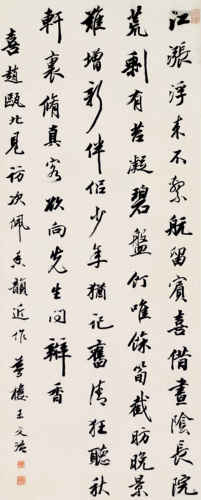 江漲浮來不繫航留賓喜借晝陰長院
荒剩有苔凝碧盤飣唯餘筍截肪晚景
難增新伴侶少年猶記舊清狂聽秋
軒裏脩真客欲向先生問瓣香
喜趙甌北見訪次佩香韻近作夢樓王文治